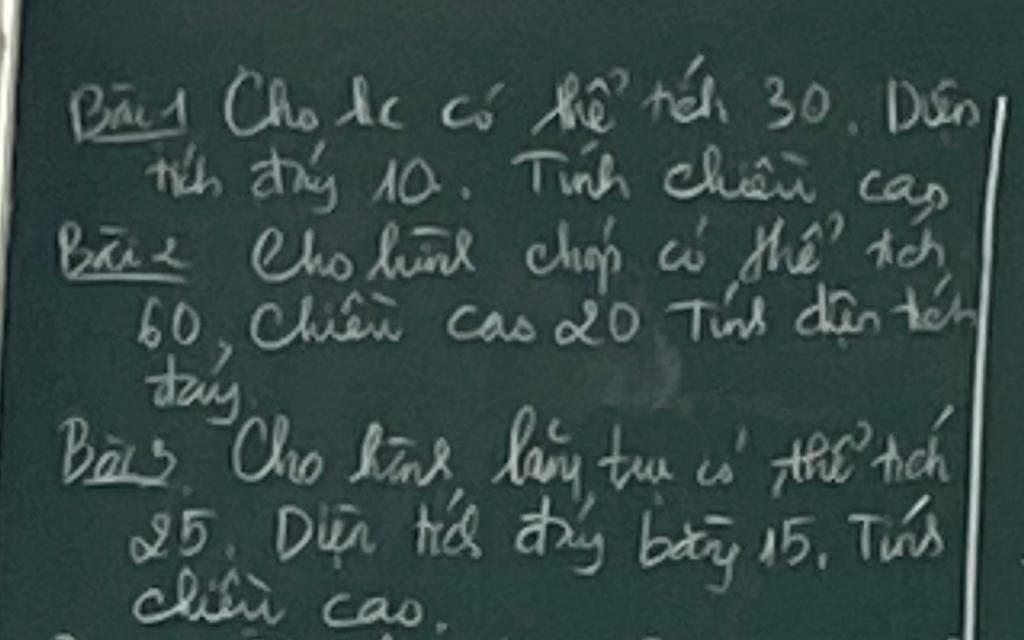 Bài 1 Cho hc có thể tích 30. Diện
tích đáy 10. Tính chiều cao
Bài 2 Cho hình chóp có thể tích
60, Chiều cao 20 Tính diện tích
đáy
Bài 3 Cho hình lăng trụ có thể tích
25. Diện tích đáy bằng 15. Tính
chiều cao.